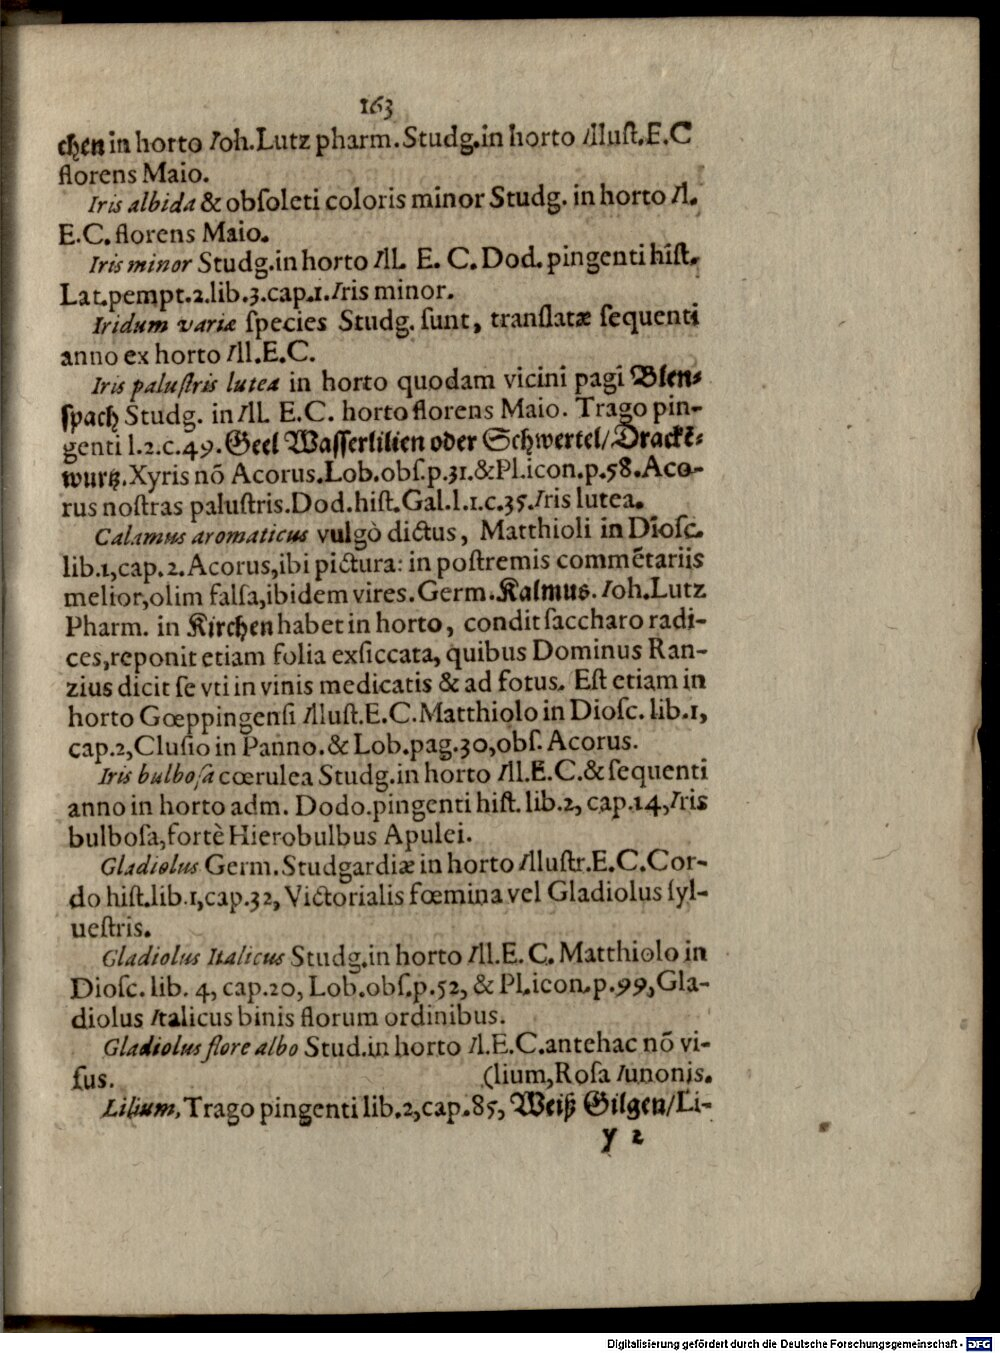 163
chen in horto Ioh.Lutz pharm.Studg.in horto Illuſt.E.C
florens Maio.
Iris albida & obſoleti coloris minor Studg. in horto Il.
E.C. florens Maio.
Iris minor Studg.in horto Ill. E. C. Dod. pingenti hiſt.
Lat.pempt.2.lib.3.cap.1.Iris minor.
Iridum variæ ſpecies Studg. ſunt, tranſlatæ ſequenti
anno ex horto Ill.E.C.
Iris paluſtris lutea in horto quodam vicini pagi Blens⸗
ſpach Studg. in Ill. E.C. horto florens Maio. Trago pin-
genti l.2.c.49. Geel Waſſerlilien oder Schwertel/Drackẽ⸗
wurtz. Xyris nõ Acorus.Lob.obſ.p.31.&Pl.icon.p.58.Aco-
rus noſtras paluſtris.Dod.hiſt.Gal.l.1.c.35.Iris lutea.
Calamus aromaticus vulgò dictus, Matthioli in Dioſc.
lib.1,cap.2.Acorus,ibi pictura: in poſtremis commẽtariis
melior,olim falſa,ibidem vires.Germ.Kalmus. Ioh.Lutz
Pharm. in Kirchen habet in horto, condit ſaccharo radi-
ces,reponit etiam folia exſiccata, quibus Dominus Ran-
zius dicit ſe vti in vinis medicatis & ad fotus. Eſt etiam in
horto Gœppingenſi Illuſt.E.C.Matthiolo in Dioſc. lib.1,
cap.2,Cluſio in Panno.& Lob.pag.30,obſ. Acorus.
Iris bulboſa cœrulea Studg.in horto Ill.E.C.& ſequenti
anno in horto adm. Dodo.pingenti hiſt. lib.2, cap.14,Iris
bulboſa,fortè Hierobulbus Apulei.
Gladiolus Germ.Studgardiæ in horto Illuſtr.E.C.Cor-
do hiſt.lib.1,cap.32, Victorialis fœmina vel Gladiolus ſyl-
ueſtris.
Gladiolus Italicus Studg.in horto Ill.E.C. Matthiolo in
Dioſc. lib. 4, cap.20, Lob.obſ.p.52, & Pl.icon.p.99,Gla-
diolus Italicus binis florum ordinibus.
Gladiolus flore albo Stud.in horto Il.E.C.antehac nõ vi-
ſus. (lium,Roſa Iunonis.
Lilium, Trago pingenti lib.2,cap.85, Weiß Gilgen/Li-
y 2
Digitalisierung gefördert durch die Deutsche Forschungsgemeinschaft - DFG